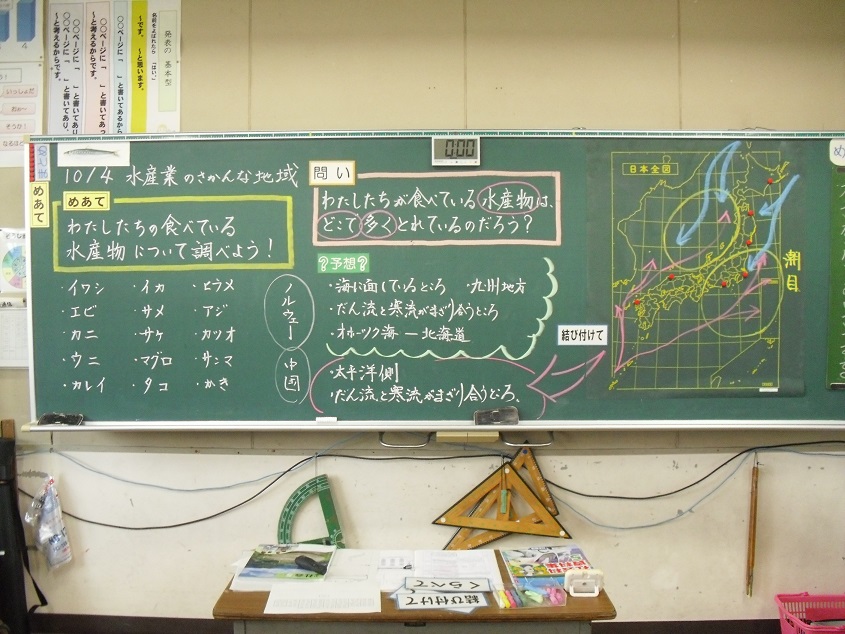 発表の基本型
名前をよばれたら「はい。」
～です。 ～と思います。
〇〇ページに「　」と書いてあるから
〇〇ページに「　」と書いてあっ
～と考えるからです。
〇〇ページに「　」と書いてあり、
～と考えるからです。
めあて
10/4 水産業のさかんな地域
めあて
わたしたちの食べている
水産物について調べよう！
・イワシ ・イカ ・ヒラメ
・エビ ・サメ ・アジ
・カニ ・サケ ・カツオ
・ウニ ・マグロ ・サンマ
・カレイ ・タコ ・かき
ノルウェー
中国
0:00
問い
わたしたちが食べている水産物は、
どこで多くとれているのだろう？
？予想？
・海に面しているところ ・九州地方
・だん流と寒流がまざり合うところ
・オホーツク海ー北海道
・太平洋側
・だん流と寒流がまざり合うところ、
結び付けて
日本全図
潮目
くらべて
結び付けて